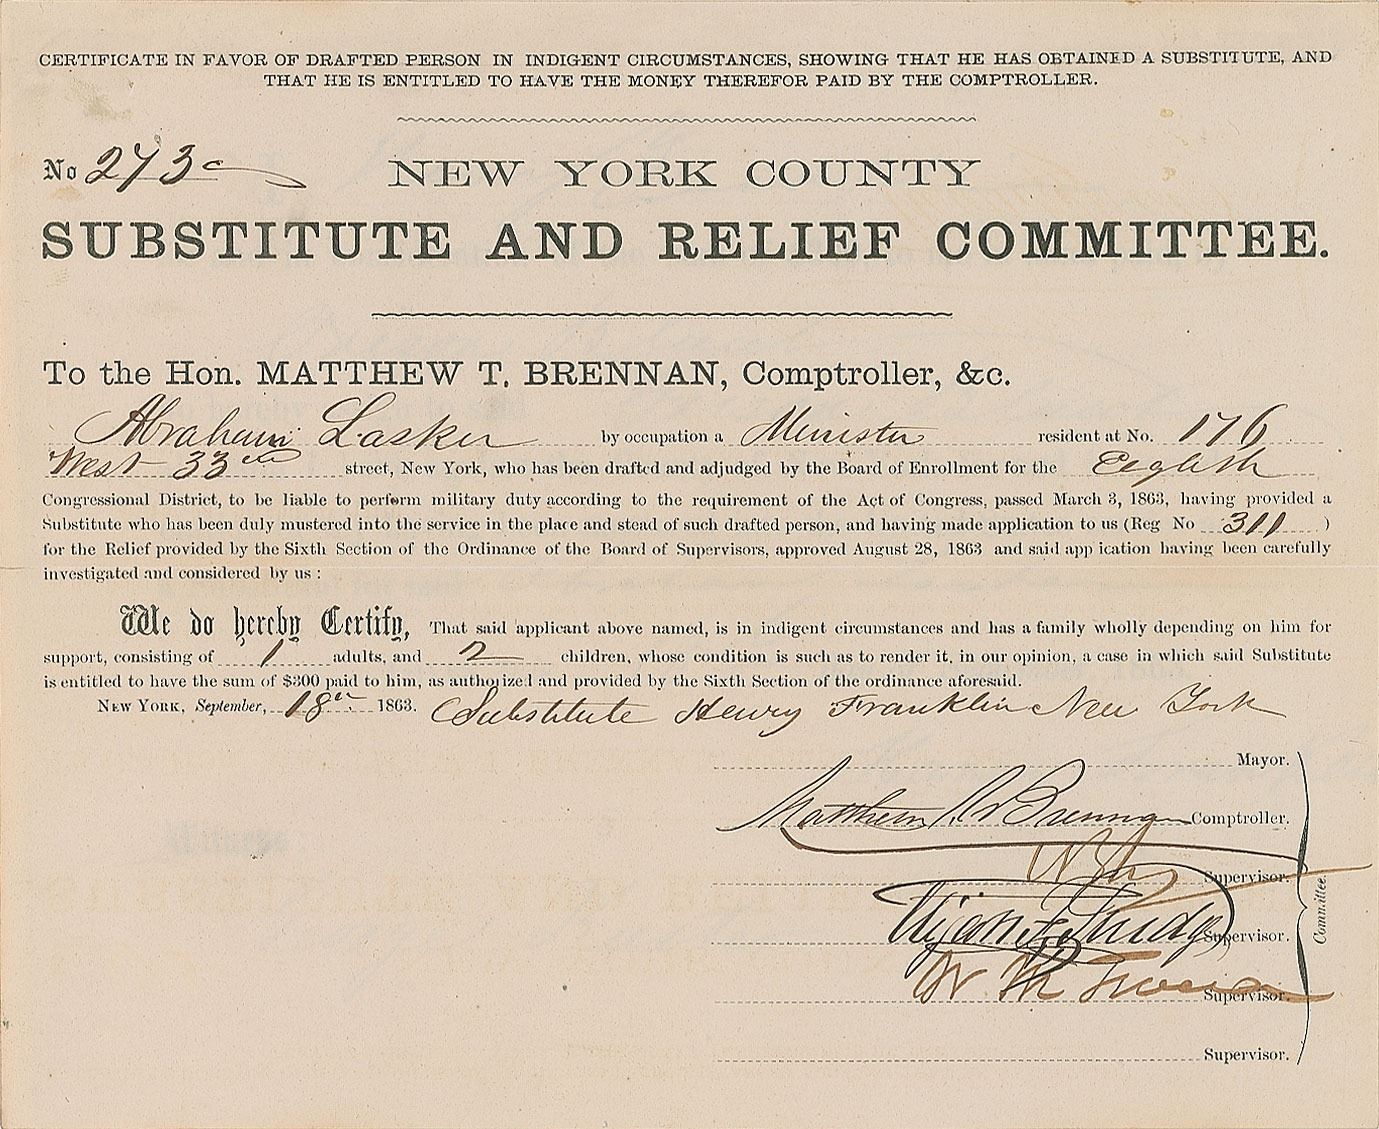 CERTIFICATE IN FAVOR OF DRAFTED PERSON IN INDIGENT CIRCUMSTANCES, SHOWING THAT HE HAS OBTAINED A SUBSTITUTE, AND
THAT HE IS ENTITLED TO HAVE THE MONEY THEREFOR PAID BY THE COMPTROLLER.
No 273
NEW YORK COUNTY
SUBSTITUTE AND RELIEF COMMITTEE.
To the Hon. MATTHEW T. BRENNAN, Comptroller, &c.
Abraham Lasker by occupation a Minister resident at No. 176
West 33 street, New York, who has been drafted and adjudged by the Board of Enrollment for the Eighth
Congressional District, to be liable to perform military duty according to the requirement of the Act of Congress, passed March 3, 1863, having provided a
Substitute who has been duly mustered into the service in the place and stead of such drafted person, and having made application to us (Reg No 311 )
for the Relief provided by the Sixth Section of the Ordinance of the Board of Supervisors, approved August 28, 1863 and said app ication having been carefully
investigated and considered by us :
We do hereby Certify, That said applicant above named, is in indigent circumstances and has a family wholly depending on him for
support, consisting of 1 adults, and 2 children, whose condition is such as to render it, in our opinion, a case in which said Substitute
is entitled to have the sum of $300 paid to him, as authorized and provided by the Sixth Section of the ordinance aforesaid.
NEW YORK, September, 18th 1863. Substitute Henry Franklin New York
Mayor.
Matthew T Brennan Comptroller.
Supervisor.
Supervisor.
Supervisor.
Supervisor.
Committee.